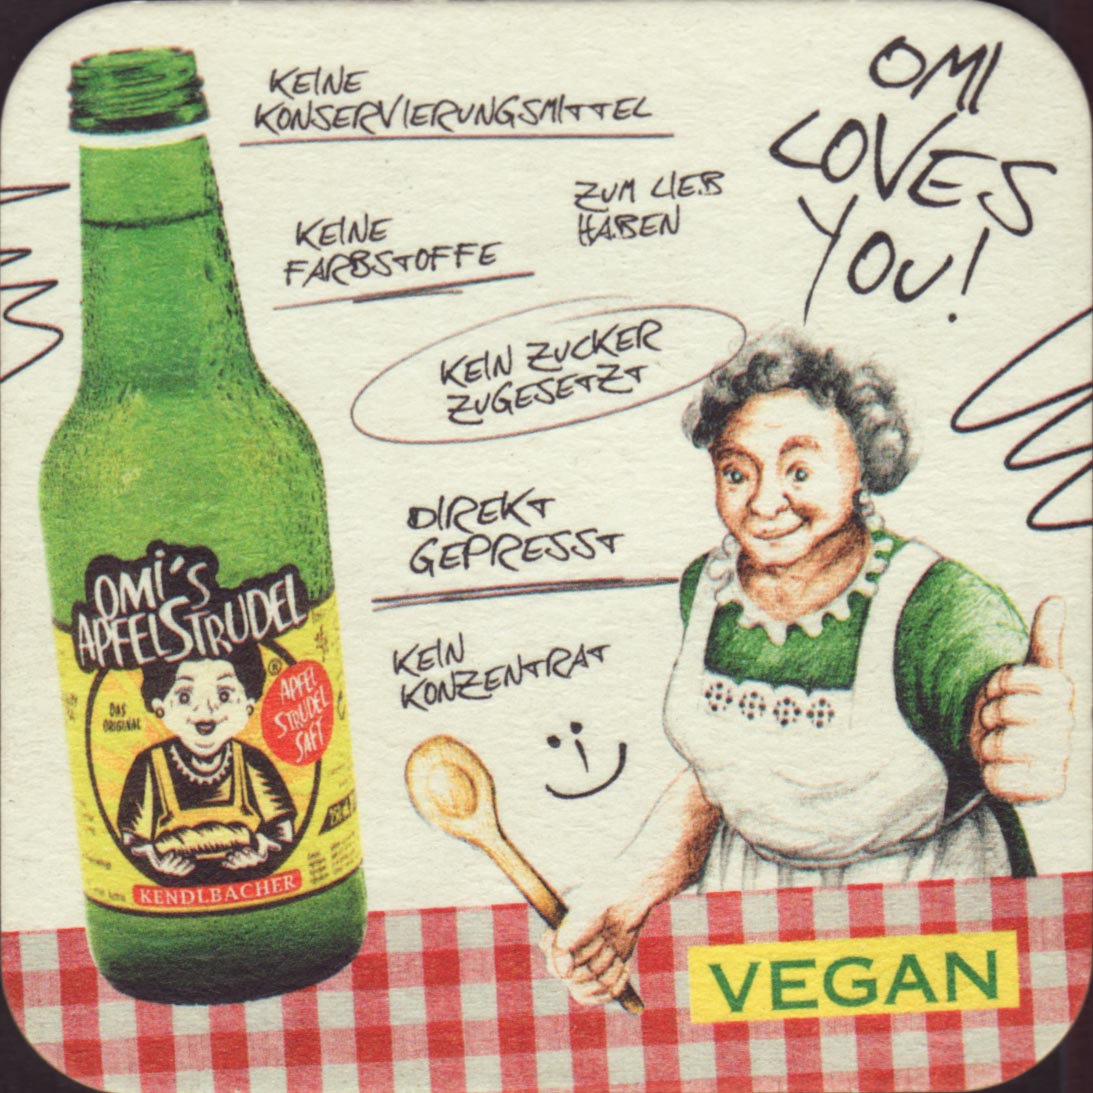 KEINE
KONSERVIERUNGSMITTEL
OMI
LOVES
YOU!
ZUM LIEB
HABEN
KEINE
FARBSTOFFE
KEIN ZUCKER
ZUGESETZT
DIREKT
GEPRESST
KEIN
KONZENTRAT
OMI´S
APFELSTRUDEL
®
DAS
ORIGINAL
APFEL
STRUDEL
SAFT
KENDLBACHER
VEGAN